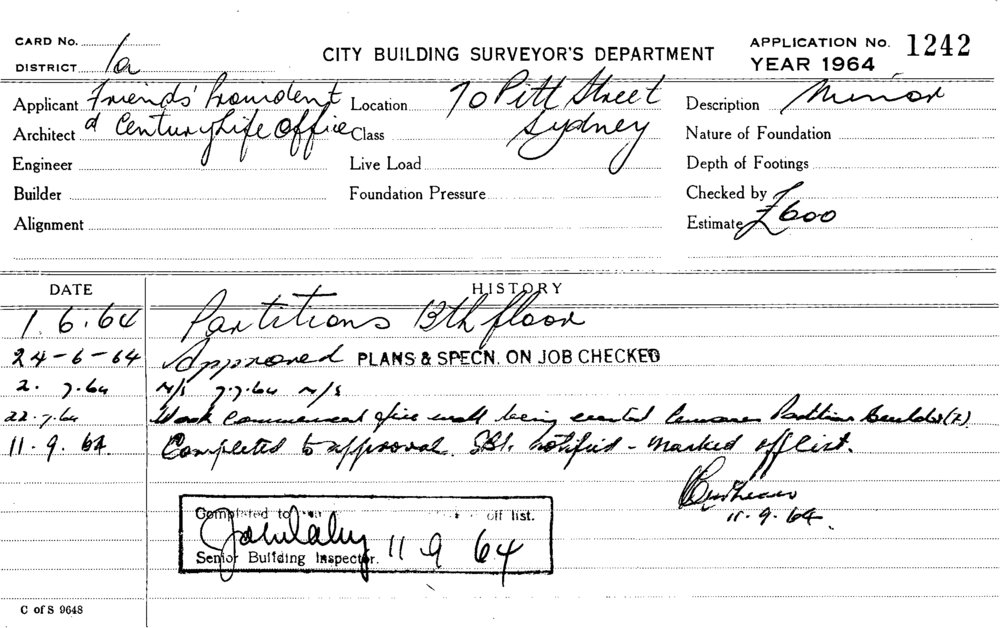 CARD No. 1a
CITY BUILDING SURVEYOR'S DEPARTMENT
APPLICATION No. 1242
DISTRICT
YEAR 1964
Applicant Friends' Provident
Location 70 Pitt Street
Description Minor
Architect & Century Life Office
Class Sydney
Nature of Foundation
Engineer
Live Load
Depth of Footings
Builder
Foundation Pressure
Checked by
Alignment
Estimate £600
DATE
HISTORY
1.6.64 Partitions 13th floor
24-6-64 Approved PLANS & SPECN. ON JOB CHECKED
2.7.64 N/S 7.7.64 N/S
22.7.64 Work commenced office wall being erected Partition Builders
11.9.64 Completed to approval. SBI. notified - marked off list.
11.9.64
Completed to off list.
11 9 64
Senior Building Inspector.
C of S 9648